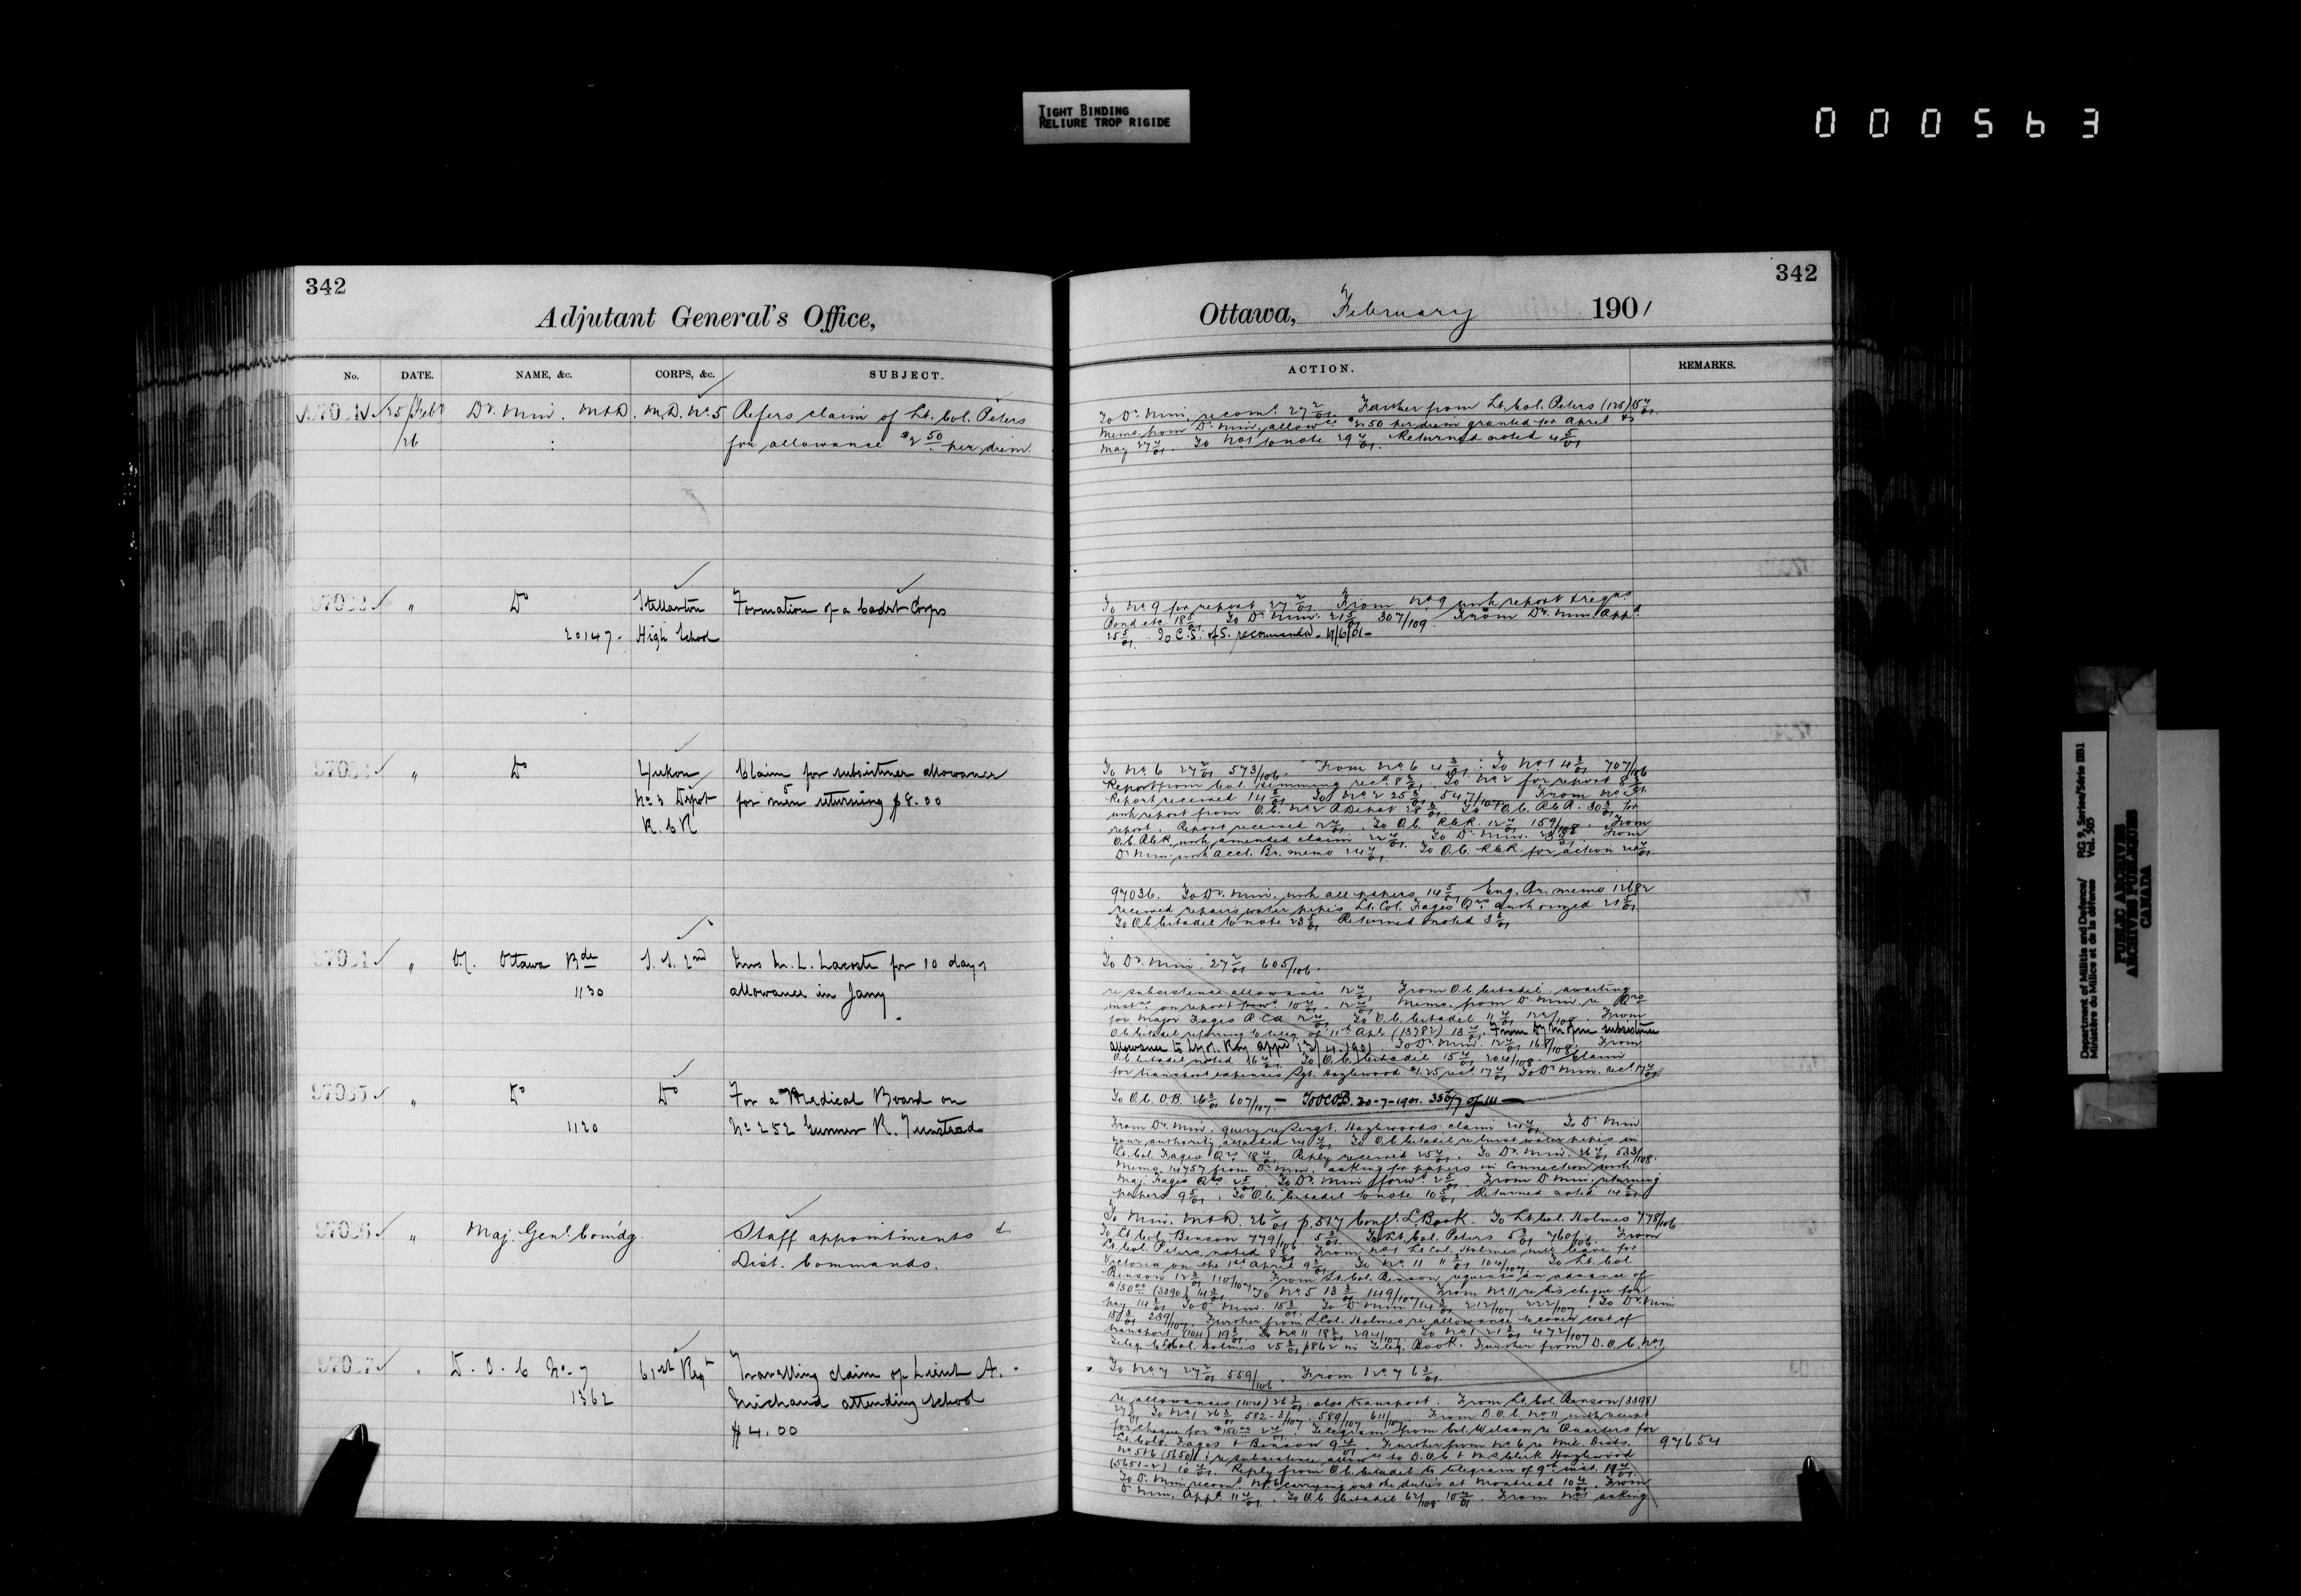 TIGHT BINDING
RELIURE TROP RIGIDE
000563
342
Adjutant General's Office,
No. DATE. NAME, &c. CORPS, &c. SUBJECT.
25 Feby Dr. Min. M&D. M.D. No. 5 Refers claim of Lt. Col. Peters
/26 : for allowance $2 50 per diem.
" Do Stellarton Formation of a Cadet Corps
20147 - High School
" Do Yukon Claim for subsistence allowance
No 3 Depot for men returning $8.00
R.C.R
" Ottawa Bde S.S. 2nd L. Lacoste for 10 days
1130 allowance in Jany.
97035 " Do Do For a Medical Board on
1120 No 252 Gunner R. Tunstead
97036 " Maj. Genl. Comdg. Staff appointments &
Dist. Commands.
97037 D.O.C No. 7 61st Regt Travelling claim of Lieut A.
1362 Michaud attending school
$4.00
342
Ottawa, February 1901
ACTION. REMARKS.
To Dr. Min. recomd. 27 2/01. Further from Lt. Col. Peters (125) 15 4/01.
Memo from Dr. Min. allowce $2.50 per diem granted for April &
May 27 4/01. To No 1 to note 29 4/01. Returned noted 4 5/01
To No. 9 for report 27 2/01. From No. 9 with report & regns
Bond etc 18 5/01. To Dr. Min. 21 5/01 307/109. From Dr. Min. Appd.
25 5/01. To C.S. of S. recommended - 11/6/01 -
To No. 6 27 2/01 573/106. From No. 6 4 3/01. To No 1 4 3/01 707/106
Report from Col. Hemming recd. 8 3/01. To No 2 for report 8 3/01
Report received 14 3/01. To No 2 25 3/01 547/107. From No 2
with report from O.C. No 2 R Depot 28 3/01. To O.C. R.C.R. 30 3/01 for
report. Report received 12 4/01. To O.C. R.C.R. 12 4/01 159/108. From
O.C. R.C.R. with amended claim 22 4/01. To Dr. Min. 23 4/01. From
Dr. Min. with Acct. Br. memo 24 4/01. To O.C. R.C.R. for action 24 4/01.
97036. To Dr. Min. with all papers 14 5/01. Eng. Br. memo 12682
received repairs water pipes Lt. Col. Fages Qrs. authorized 21 5/01.
To O.C. Citadel to note 23 5/01 Returned noted 3 6/01
To Dr. Min. 27 2/01 605/106.
re subsistence allowance 12 4/01. From O.C. Citadel. awaiting
instns on report 10 4/01. 12 4/01. Memo. from Dr. Min. re Qrs
for Major Fages R.C.A 12 4/01. To O.C. Citadel 11 4/01 122/108. From
O.C. Citadel referring to teleg. of 11th Apl. (13782) 13 4/01. From Dy Min re subsistence
allowance to Lt. Col. Roy appd 13/4/1901. To Dr. Min. 12 4/01 168/108. From
O.C. Citadel noted 16 4/01. To O.C. Citadel 15 4/01 204/108. Claim
for transport expenses Sgt. Hazlewood $1.25 recd. 17 4/01. To Dr. Min. recd. 17 4/01.
To O.C. O.B. 26 3/01 607/107. - To OCOB. 20-7-1901. 356/7 of 111 -
From Dr. Min. query re Sergt. Hazlewoods claim 24 4/01. To Dr. Min
your authority attached 24 4/01. To O.C. Citadel re burst water pipes in
Lt. Col. Fages Qrs. 18 4/01. Reply received 25 4/01. To Dr. Min. 26 4/01 533/108.
Memo. 14757 from Dr. Min. asking for papers in connection with
Maj. Fages Qrs 2 5/01. To Dr. Min. forwd. 2 5/01. From D. Min. returning
papers 9 5/01. To O.C. Citadel to note 10 5/01. Returned noted 14 5/01
To Min. M&D. 26 2/01 p. 517 Conf. L. Book. To Lt. Col. Holmes 778/106.
To Lt. Col. Benson 779/106 5 3/01. To Lt. Col. Peters 5 3/01 760/106. From
Lt. Col. Peters, noted 8 3/01. From No 1 Lt. Col. Holmes will leave for
Victoria on the 1st April 9 3/01. To No. 11 11 3/01 104/107. To Lt. Col.
Benson 12 3/01 110/107. From Lt. Col. Benson requests an advance of
$150 00 (3390) 14 3/01. To No. 5 13 3/01 149/107. From No 11 re his cheque for
pay 14 3/01. To D. Min. 15 3/01. To D. Min. 14 3/01 212/107 222/107. To Dr. Min
15 3/01 239/107. Further from Lt. Col. Holmes re allowance to cover cost of
transport (104) 19 3/01. To No 11 18 3/01 294/107. To No 1 21 3/01 472/107
Teleg. to Lt. Col. Holmes 25 3/01 p862 in Teleg. Book. Further from D.O.C. No 1
To No. 7 27 2/01 559/106. From No. 7 6 3/01.
re allowances (104) 26 3/01 also transport. From Lt. Col. Benson (3398)
27 3/01 To No 1 26 3/01 582-3/107 589/107 611/107. From D.O.C. No 11 with receipt
for cheque for $150 00 2 4/01. Telegram from Col. Wilson re Quarters for
Lt. Cols. Fages & Benson 9 4/01. Further from No. 6 re Mil. Dists. 97654
No 5 & 6 (5650) & re subsistence allowce to D.O.C. & M.S. Clerk Hazlewood
(5651-2) 10 4/01. Reply from O.C. Citadel to telegram of 9th inst. 10 4/01.
To D. Min. recomd. No. 6 carrying out the duties at Montreal 10 4/01. From
D. Min. Appd. 11 4/01. To O.C. Citadel 62/108 10 4/01. From No 1 asking
Department of Militia and Defence/ RG 9, Series/Série IIB1
Ministère du Milice et de la défense Vol. 505
PUBLIC ARCHIVES
ARCHIVES PUBLIQUES
CANADA